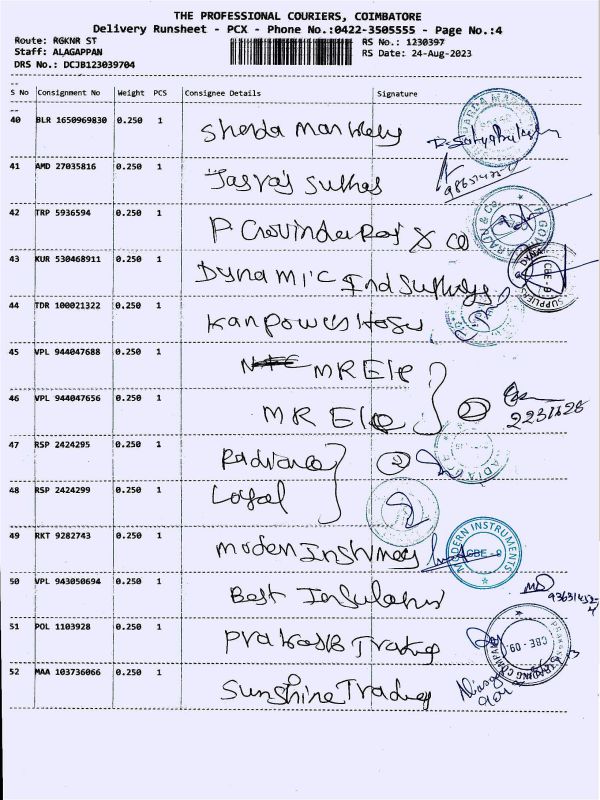 THE PROFESSIONAL COURIERS, COIMBATORE
Delivery Runsheet - PCX - Phone No.:0422-3505555 - Page No.:4
Route: RGKNR ST RS No.: 1230397
Staff: ALAGAPPAN RS Date: 24-Aug-2023
DRS No.: DCJB123039704
S No Consignment No Weight PCS Consignee Details Signature
40 BLR 1650969830 0.250 1
41 AMD 27035816 0.250 1
42 TRP 5936594 0.250 1 P Govinda Raj & Co
43 KUR 530468911 0.250 1 Dynamic Ind Supplys
44 TDR 100021322 0.250 1 Kanpowers Hoses
45 VPL 944047688 0.250 1 MR Ele
46 VPL 944047656 0.250 1 MR Ele 2
47 RSP 2424295 0.250 1 Radiance 2
48 RSP 2424299 0.250 1 Loyal
49 RKT 9282743 0.250 1 Modern Instrumes MODERN INSTRUMENTS CBE - 9
50 VPL 943050694 0.250 1 Best Insulators
51 POL 1103928 0.250 1 Prakash Trading CBE - 09.
52 MAA 103736066 0.250 1 Sunshine Trading